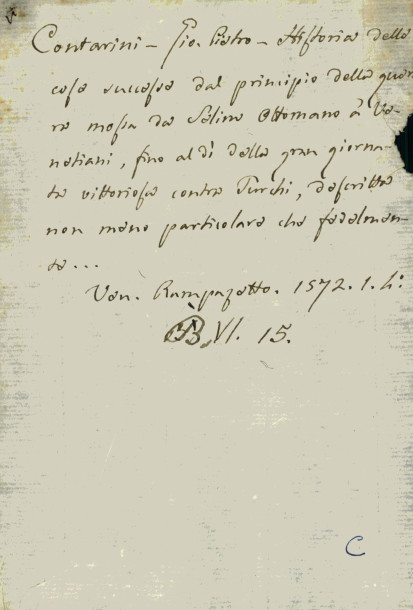 Contarini - Gio. Pietro - Historia delle
cose successe dal principio della guer
ra mossa da Selino Ottomano à Ve-
netiani, fino al dì della gran giorna-
ta vittoriosa contra Turchi, descritta
non meno particolare che fedelmen-
te...
Ven. Rampazetto. 1572. 1. 4º
B. VI. 15.
C